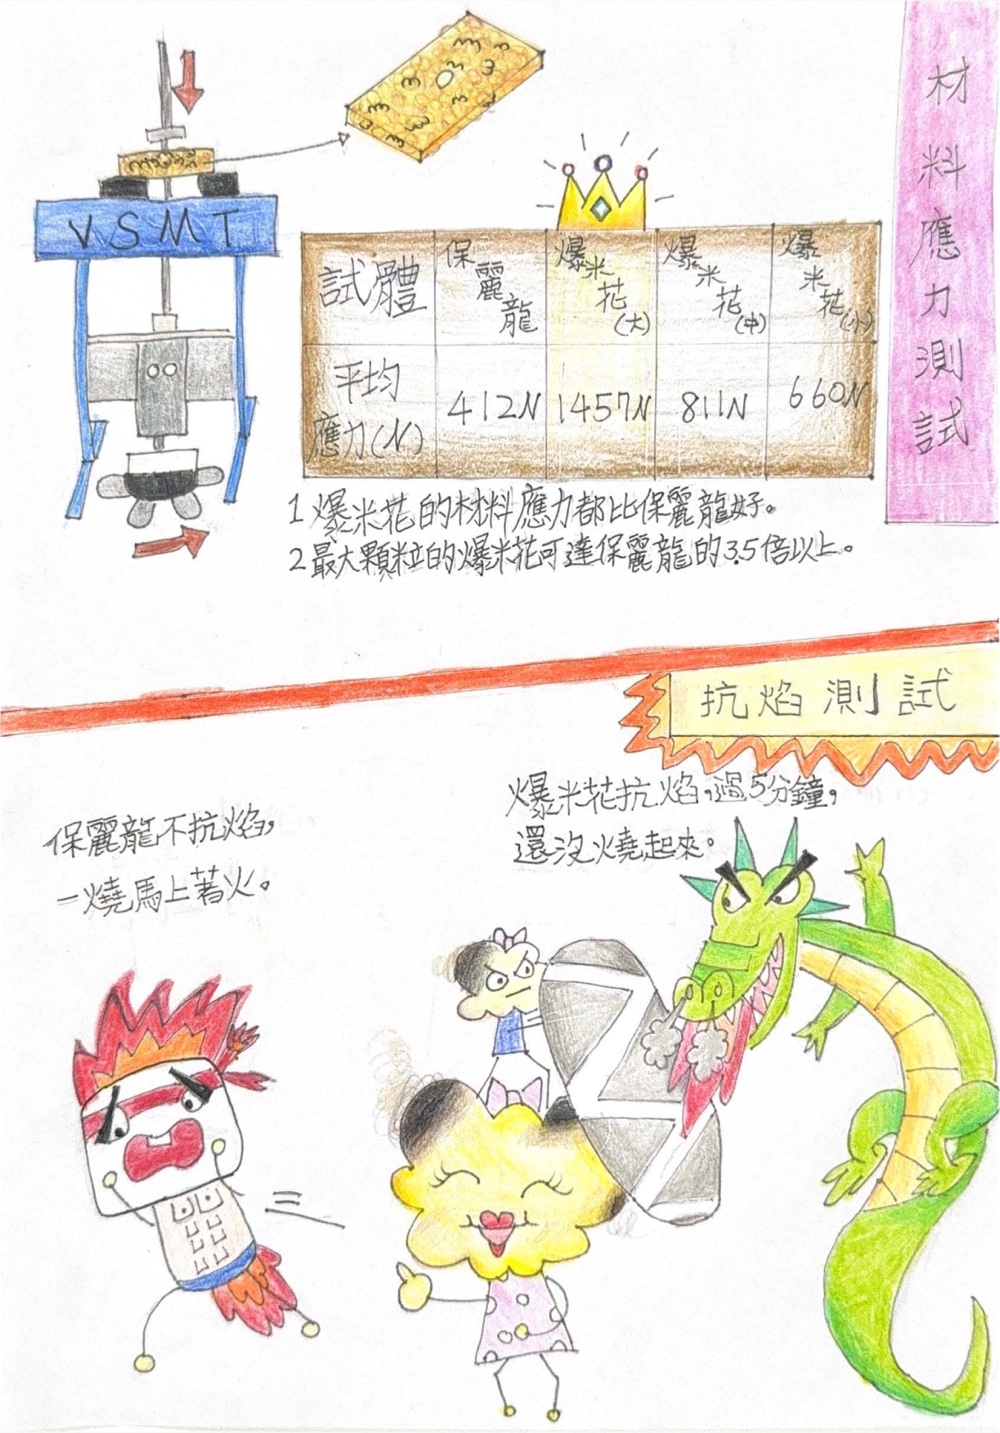 材料應力測試
VSMT
試體 保麗龍 爆米花(大) 爆米花(中) 爆米花(小)
平均應力(N) 412N 1457N 811N 660N
1 爆米花的材料應力都比保麗龍好。
2 最大顆粒的爆米花可達保麗龍的3.5倍以上。
抗焰測試
保麗龍不抗焰,
一燒馬上著火。
爆米花抗焰,過5分鐘,
還沒燒起來。